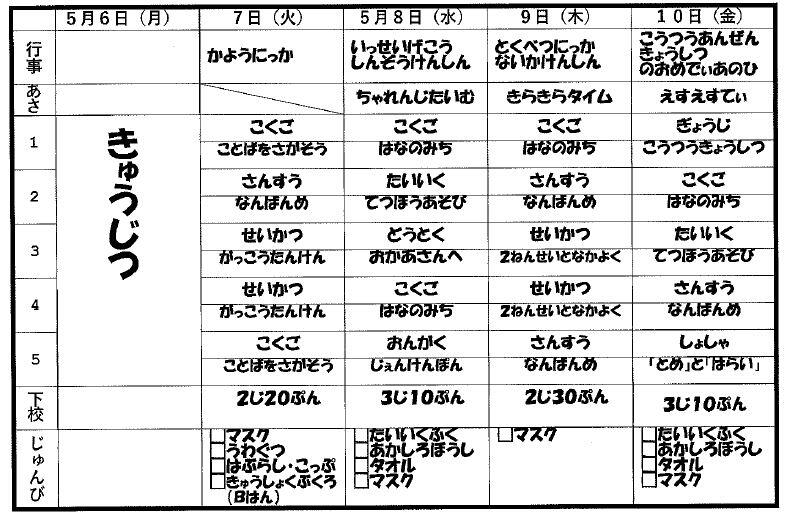 5月6日（月） 7日（火） 5月8日（水） 9日（木） 10日（金）
行事 かようにっか いっせいげこう しんぞうけんしん とくべつにっか ないかけんしん こうつうあんぜん きょうしつ のおめでぃあのひ
あさ ちゃれんじたいむ きらきらタイム えすえすてぃ
きゅうじつ
1 こくご こくご こくご ぎょうじ
ことばをさがそう はなのみち はなのみち こうつうきょうしつ
2 さんすう たいいく さんすう こくご
なんばんめ てつぼうあそび なんばんめ はなのみち
3 せいかつ どうとく せいかつ たいいく
がっこうたんけん おかあさんへ 2ねんせいとなかよく てつぼうあそび
4 せいかつ こくご せいかつ さんすう
がっこうたんけん はなのみち 2ねんせいとなかよく なんばんめ
5 こくご おんがく さんすう しょしゃ
ことばをさがそう じぇんけんぽん なんばんめ 「とめ」と「はらい」
下校 2じ20ぷん 3じ10ぷん 2じ30ぷん 3じ10ぷん
じゅんび
マスク たいいくふく マスク たいいくふく
うわぐつ あかしろぼうし あかしろぼうし
はぶらし・こっぷ タオル タオル
きゅうしょくぶくろ マスク マスク
（Bはん）